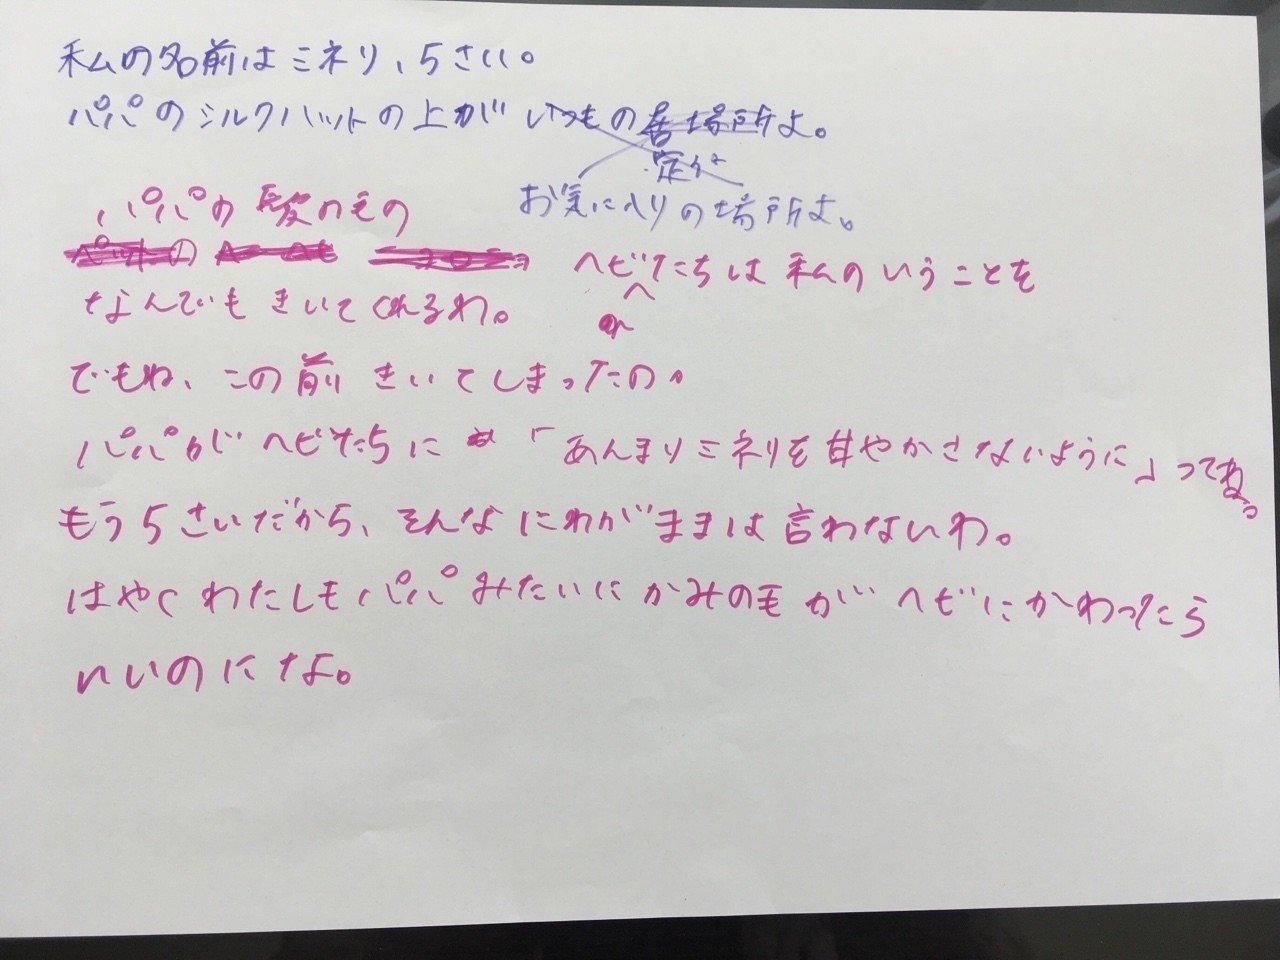 私の名前はミネリ、5さい。
パパのシルクハットの上がいつもの居場所よ。
定位
お気に入りの場所よ。
パパの髪の毛の
ペットの
ヘビたちは私のいうことを
なんでもきいてくれるわ。
でもね、この前きいてしまったの。
パパがヘビたちに「あんまりミネリを甘やかさないように」ってね。
もう5さいだから、そんなにわがままは言わないわ。
はやくわたしもパパみたいにかみの毛がヘビにかわったら
いいのにな。